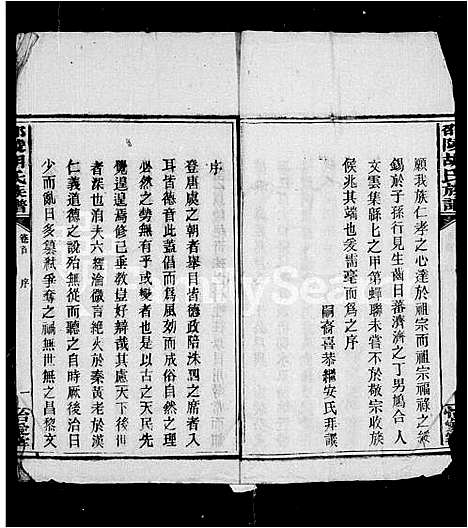 邵陵胡氏族譜
顧我族仁孝之心達於祖宗而祖宗福祿之綏
錫於子孫行見生齒日蕃濟濟之丁男鳩合人
文雲集縣匕之甲第蟬聯未嘗不於敬宗收族
候兆其端也爰濡毫而爲之序
嗣裔喜恭繼安氏拜譔
序
登唐虞之朝者舉目皆德政陪洙泗之席者入
耳皆德音此蓋倡而爲風効而成俗自然之理
必然之勢無有乎或變者也是以古之天民先
覺遑遑焉修己垂教豈好辯哉其處天下後世
者深也洎夫六經淪微言絶火於秦黃老於漢
仁義道德之說殆無從而聽之自時厥後治日
少而亂日多篡弒爭奪之禍無世無之昌黎文
邵陵胡氏族譜
卷首
序
一
FamilySearch